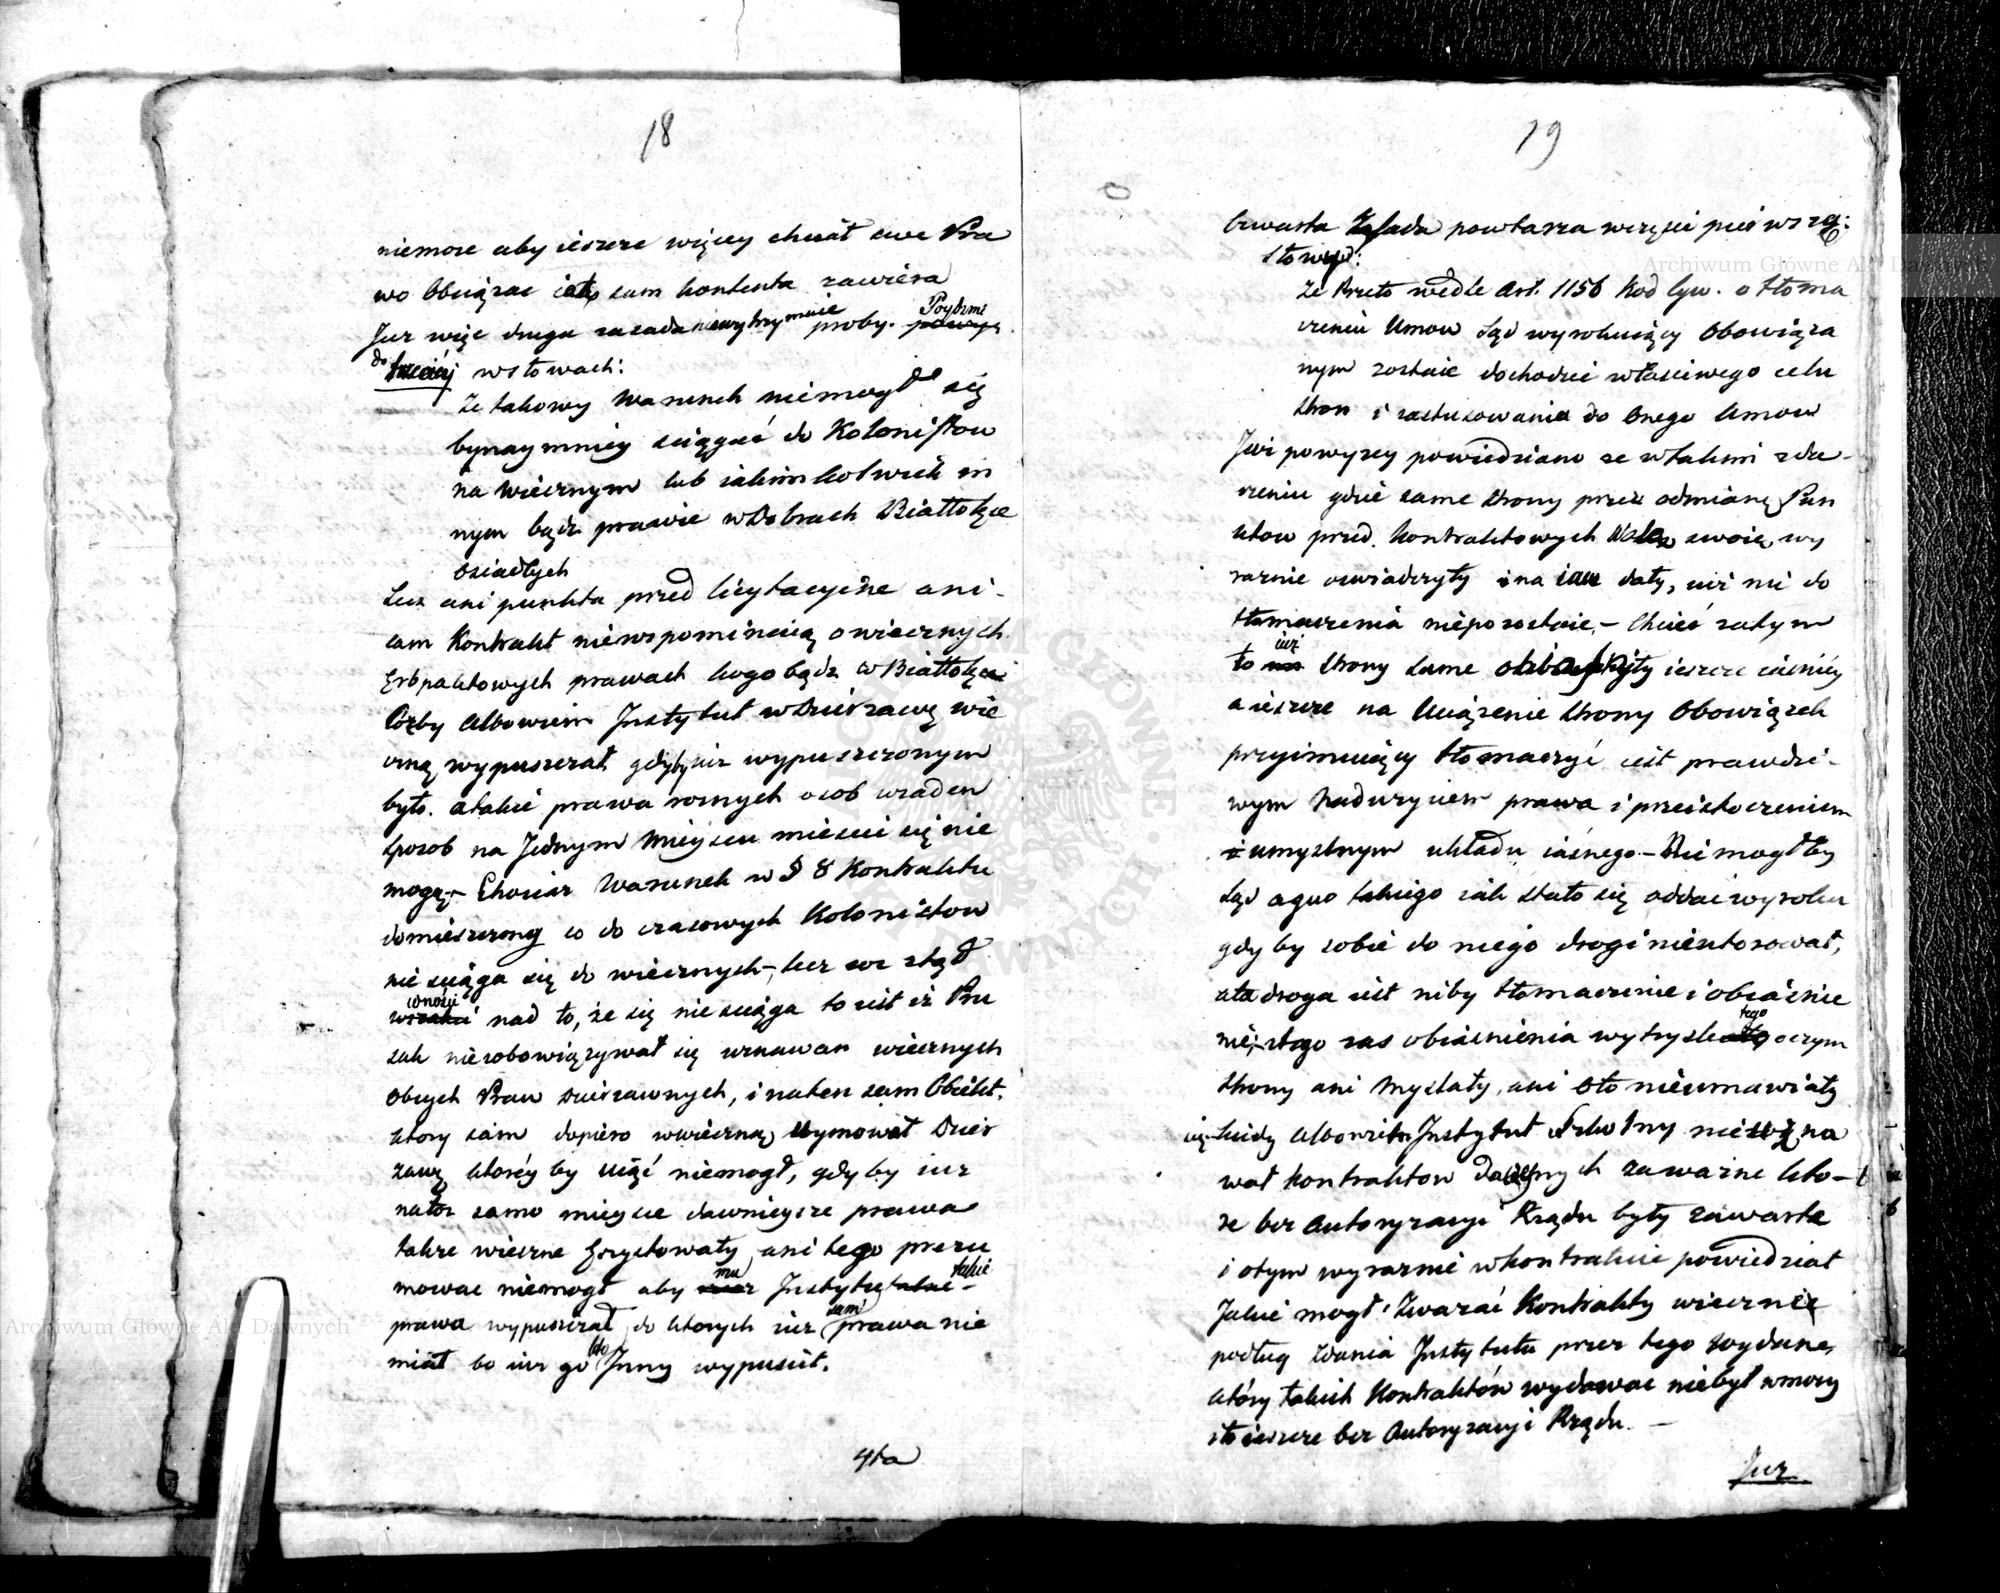 18
niemoże aby ieszcze więcey chciał swe Pra
wo Obciążać iak sam kontrakt zawiera
Juz więc druga zasada niewytrzymuie proby. Póydźmi
do trzeciéj w słowach:
Ze takowy Warunek niemogł się
bynaymniey sciągać do Kolonistow
na wiecznym lub iakimkolwiek in
nym bądź prawie w Dobrach Białłołęce
osiadłych
Lecz ani punkta przed licytacyine ani
sam Kontrakt niewspominaią o wiecznych
Erbpaktowych prawach kogo bądz w Białłołęce
Cożby Albowiem Instytut w Dzierzawę wie
czną wypuszczał, gdyby iuz wypuszczonym
było. a takie prawa roznych osob w zaden
sposob na Jednym Mieyscu miescić się nie
mogą – Chociaz Warunek w § 8 Kontraktu
domieszczony co do czasowych Kolonistow
nie sciąga się do wiecznych, lecz ze ztąd
wnosić nad to, że się nie sciąga to iest iż Pru
sak niezobowiązywał się uznawać wiecznych
obcych Praw dzierzawnych, i na ten sam Obiekt,
ktory sam dopiero w wieczną Uymował Dzier
zawę ktoréy by uiąć niemogł, gdyby iuz
na toz samo mieysce dawnieysze prawa
takze wieczne Exystowały, ani tego przeu
mowac niemogł aby mu Instytut takie
prawa wypuszczał do ktorych iuz sam prawa nie
miał bo iuz go kto Jnny wypuscił.
4ta
19
Czwarta Zasada powtarza wczęsci pierwszą:
słowy:
Ze Przeto wedle Art. 1156 Kod Cyw. o tłoma
czeniu Umow Sąd wyrokuiący Obowiąza
nym zostaie dochodzić właściwego celu
stron i zastosowania do Onego Umow
Juz powyzey powiedziano ze w takim zda
rzeniu gdzie same strony przez odmianę Pun
ktow przed. Kontraktowych Wolą swoię wy
raznie oswiadczyły i na iaw dały, iuż nic do
tłomaczenia niepozostaie – Chcieć zatym
to iuż strony same ieszcze iaśniey
a ieszcze na Uciążenie strony Obowiązek
przyimuiący tłomaczyć iest prawdzi
wym naduzyciem prawa i przeistoczeniem
umyslnym układu iaśnego – Nie mogłby
Sąd a quo takiego iak stało się oddać wyroku
gdy by sobie do niego drogi nieutorował,
a ta droga iest niby tłomaczenie i obiaśnie
nie, z tego zas obiaśnienia wytryska tego o czym
strony ani Myslały, ani o to nieumawiały
się kiedy Albowiem Instytut Szkolny nieuzna
wał kontraktow dawnych za wazne kto–
re bez Autoryzacyi Rządu były zawarte
i o tym wyraznie w kontrakcie powiedział
Jakie mogł Zwazać Kontrakty wieczne
podług zdania Instytutu przez tego wydane,
który takich Kontraktów wydawac niebył w mocy
i to ieszcze bez Autoryzacyi Rządu. –
Juz
Archiwum Główne Akt Dawnych
Archiwum Główne Akt Dawnych